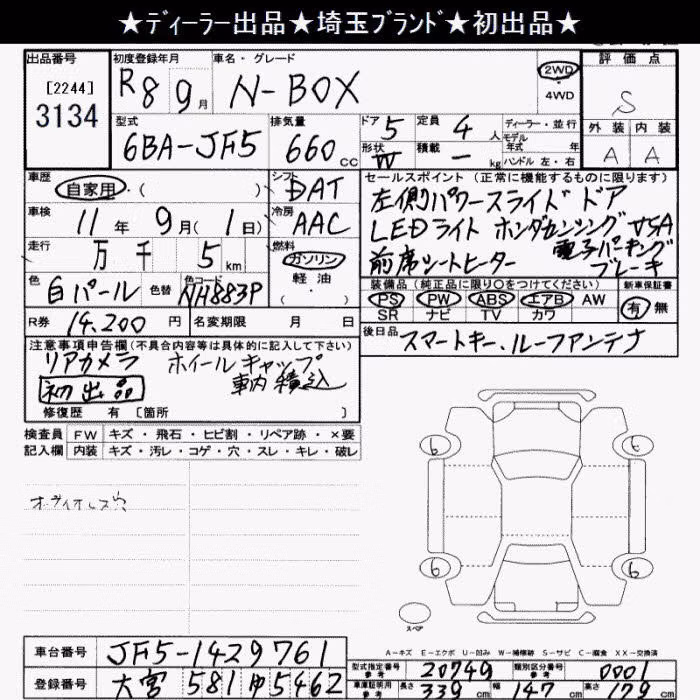 ★ディーラー出品★埼玉ブランド★初出品★
出品番号 [2244] 3134
初度登録年月 R8 9月
車名・グレード N-BOX
2WD・4WD
評価点 S
外装 A 内装 A
型式 6BA-JF5
排気量 660cc
ドア 5 形状 W
定員 4人 積載 - kg
ディーラー・並行
モデル年式 年式
ハンドル 左・右
車歴 自家用・( )
シフト DAT
セールスポイント (正常に機能するものに限ります)
左側パワースライドドア
LEDライト ホンダセンシング USA
前席シートヒーター 電子パーキングブレーキ
車検 11年9月(1日)
冷房 AAC
走行 万千5km
燃料 ガソリン・軽油( )
色 白パール 色替 色コード NH883P
装備品 (純正品に限り○をつけてください) 新車保証書
PS PW ABS エアB AW 有・無
SR ナビ TV カワ
R券 14,200円 名変期限 月 日
後日品 スマートキー、ルーフアンテナ
注意事項申告欄(不具合内容等は具体的に記入して下さい)
リアカメラ ホイールキャップ
初出品 車内積込
修復歴 有 [箇所 ]
検査員 FW キズ・飛石・ヒビ割・リペア跡・×要
記入欄 内装 キズ・汚レ・コゲ・穴・スレ・キレ・破レ
オーディオレス穴
6 6
6 6
スペア
A-キズ E-エクボ U-凹み W-補修跡 S-サビ C-腐食 XX-交換済
車台番号 JF5-1429761
型式指定番号 参考 20749 類別区分番号 参考 0001
登録番号 大宮 581 ゆ 5462
車庫証明用 参考 長さ 339cm 幅 147cm 高さ 179cm